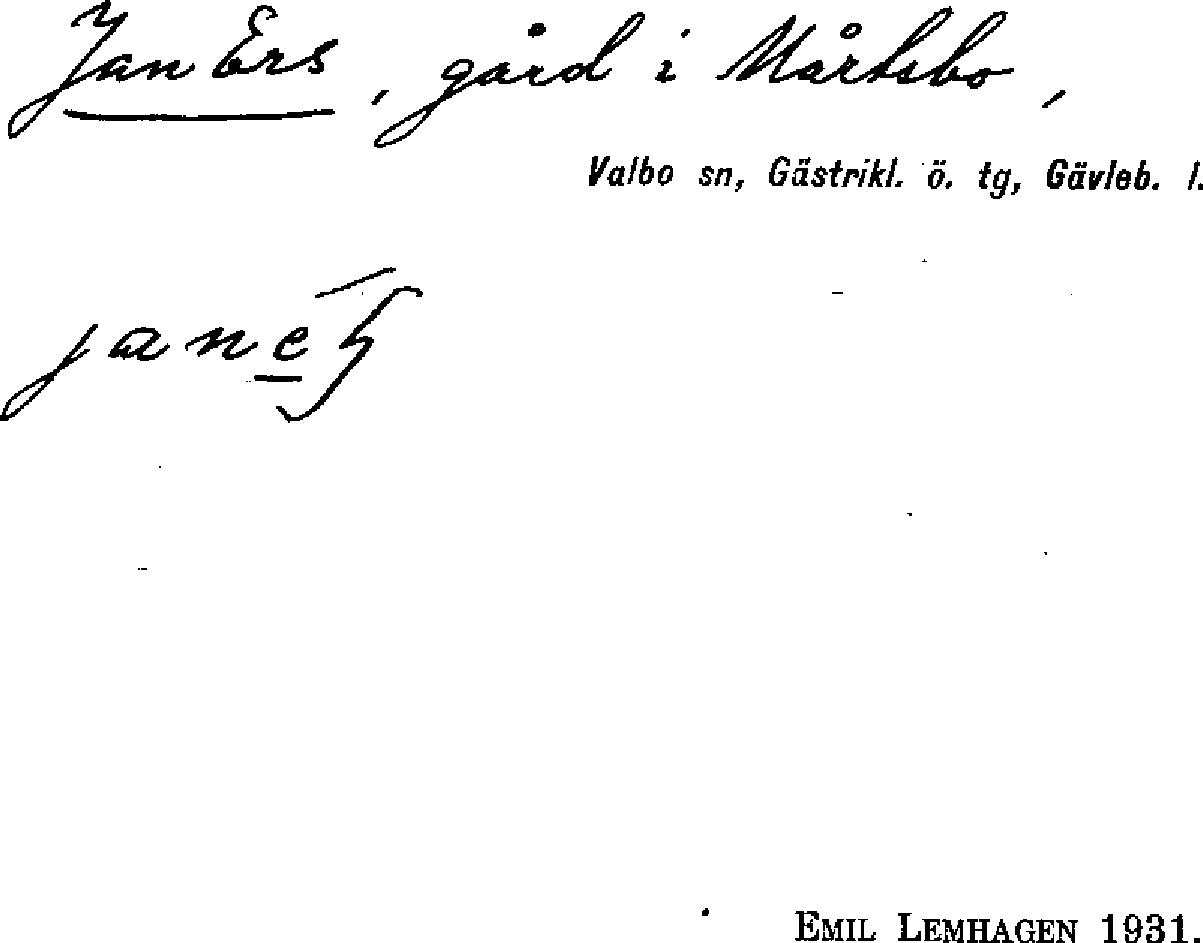 Jan Ers, gård i Mårtsbo,
Valbo sn, Gästrikl. ö. tg, Gävleb. l.
EMIL LEMHAGEN 1931.